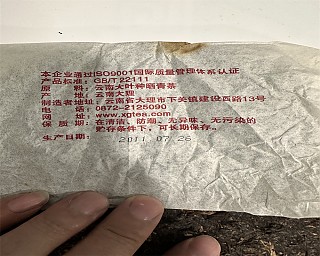 本企业通过ISO9001国际质量管理体系认证
产品标准：GB/T22111
原 料：云南大叶种晒青茶
产 地：云南大理
制造者地址：云南省大理市下关镇建设西路13号
电 话：0872-2125090
网 址：www.xgtea.com
保 质 期：在清洁、防潮、无异味、无污染的
贮存条件下，可长期保存。
生产日期：2011.07.26